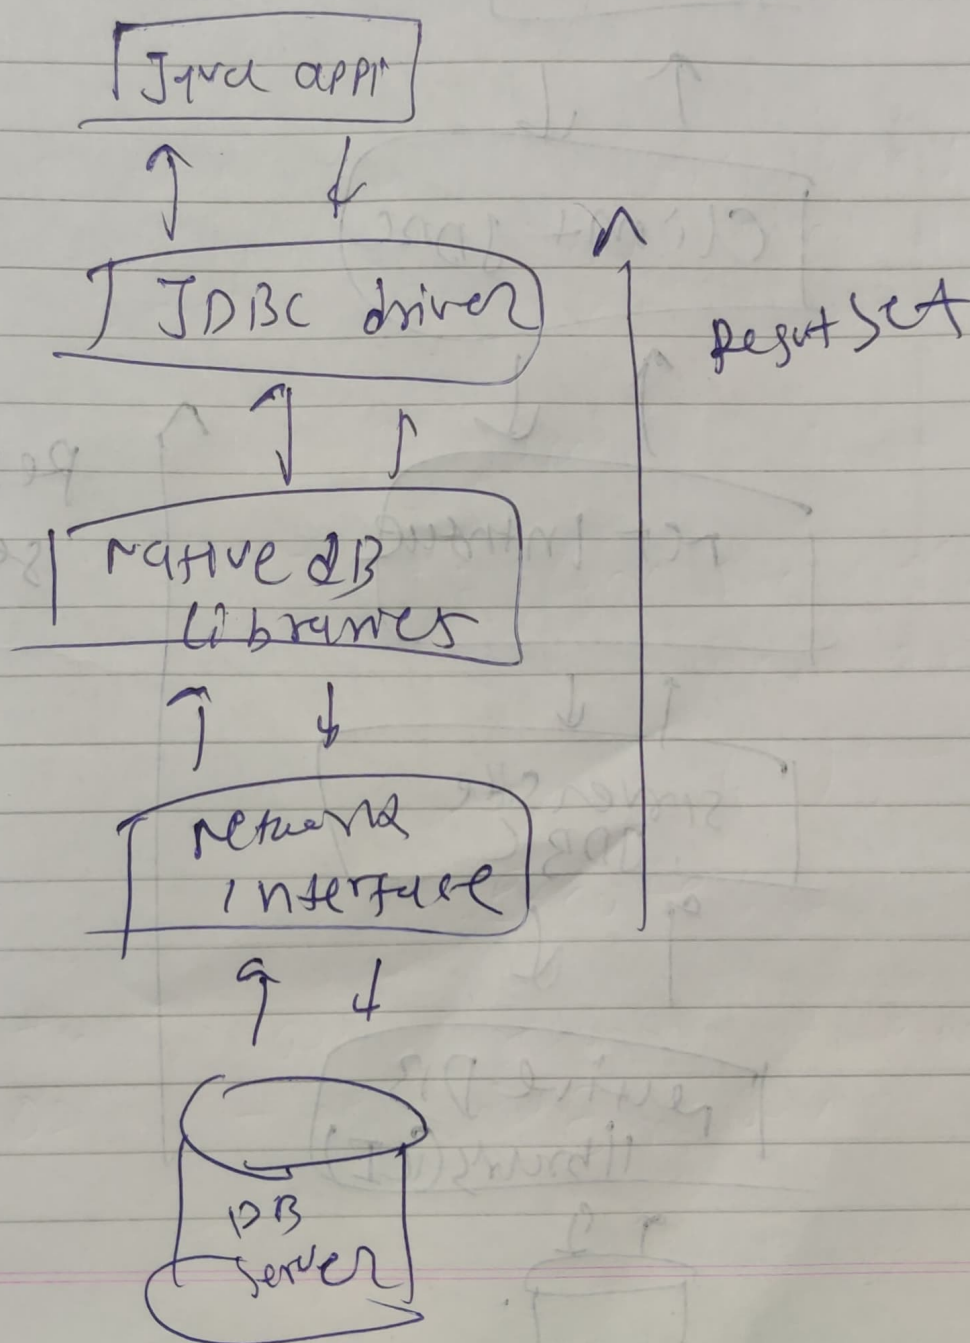 Java appl
JDBC driver
Result Set
native DB
libraries
network
interface
DB
server